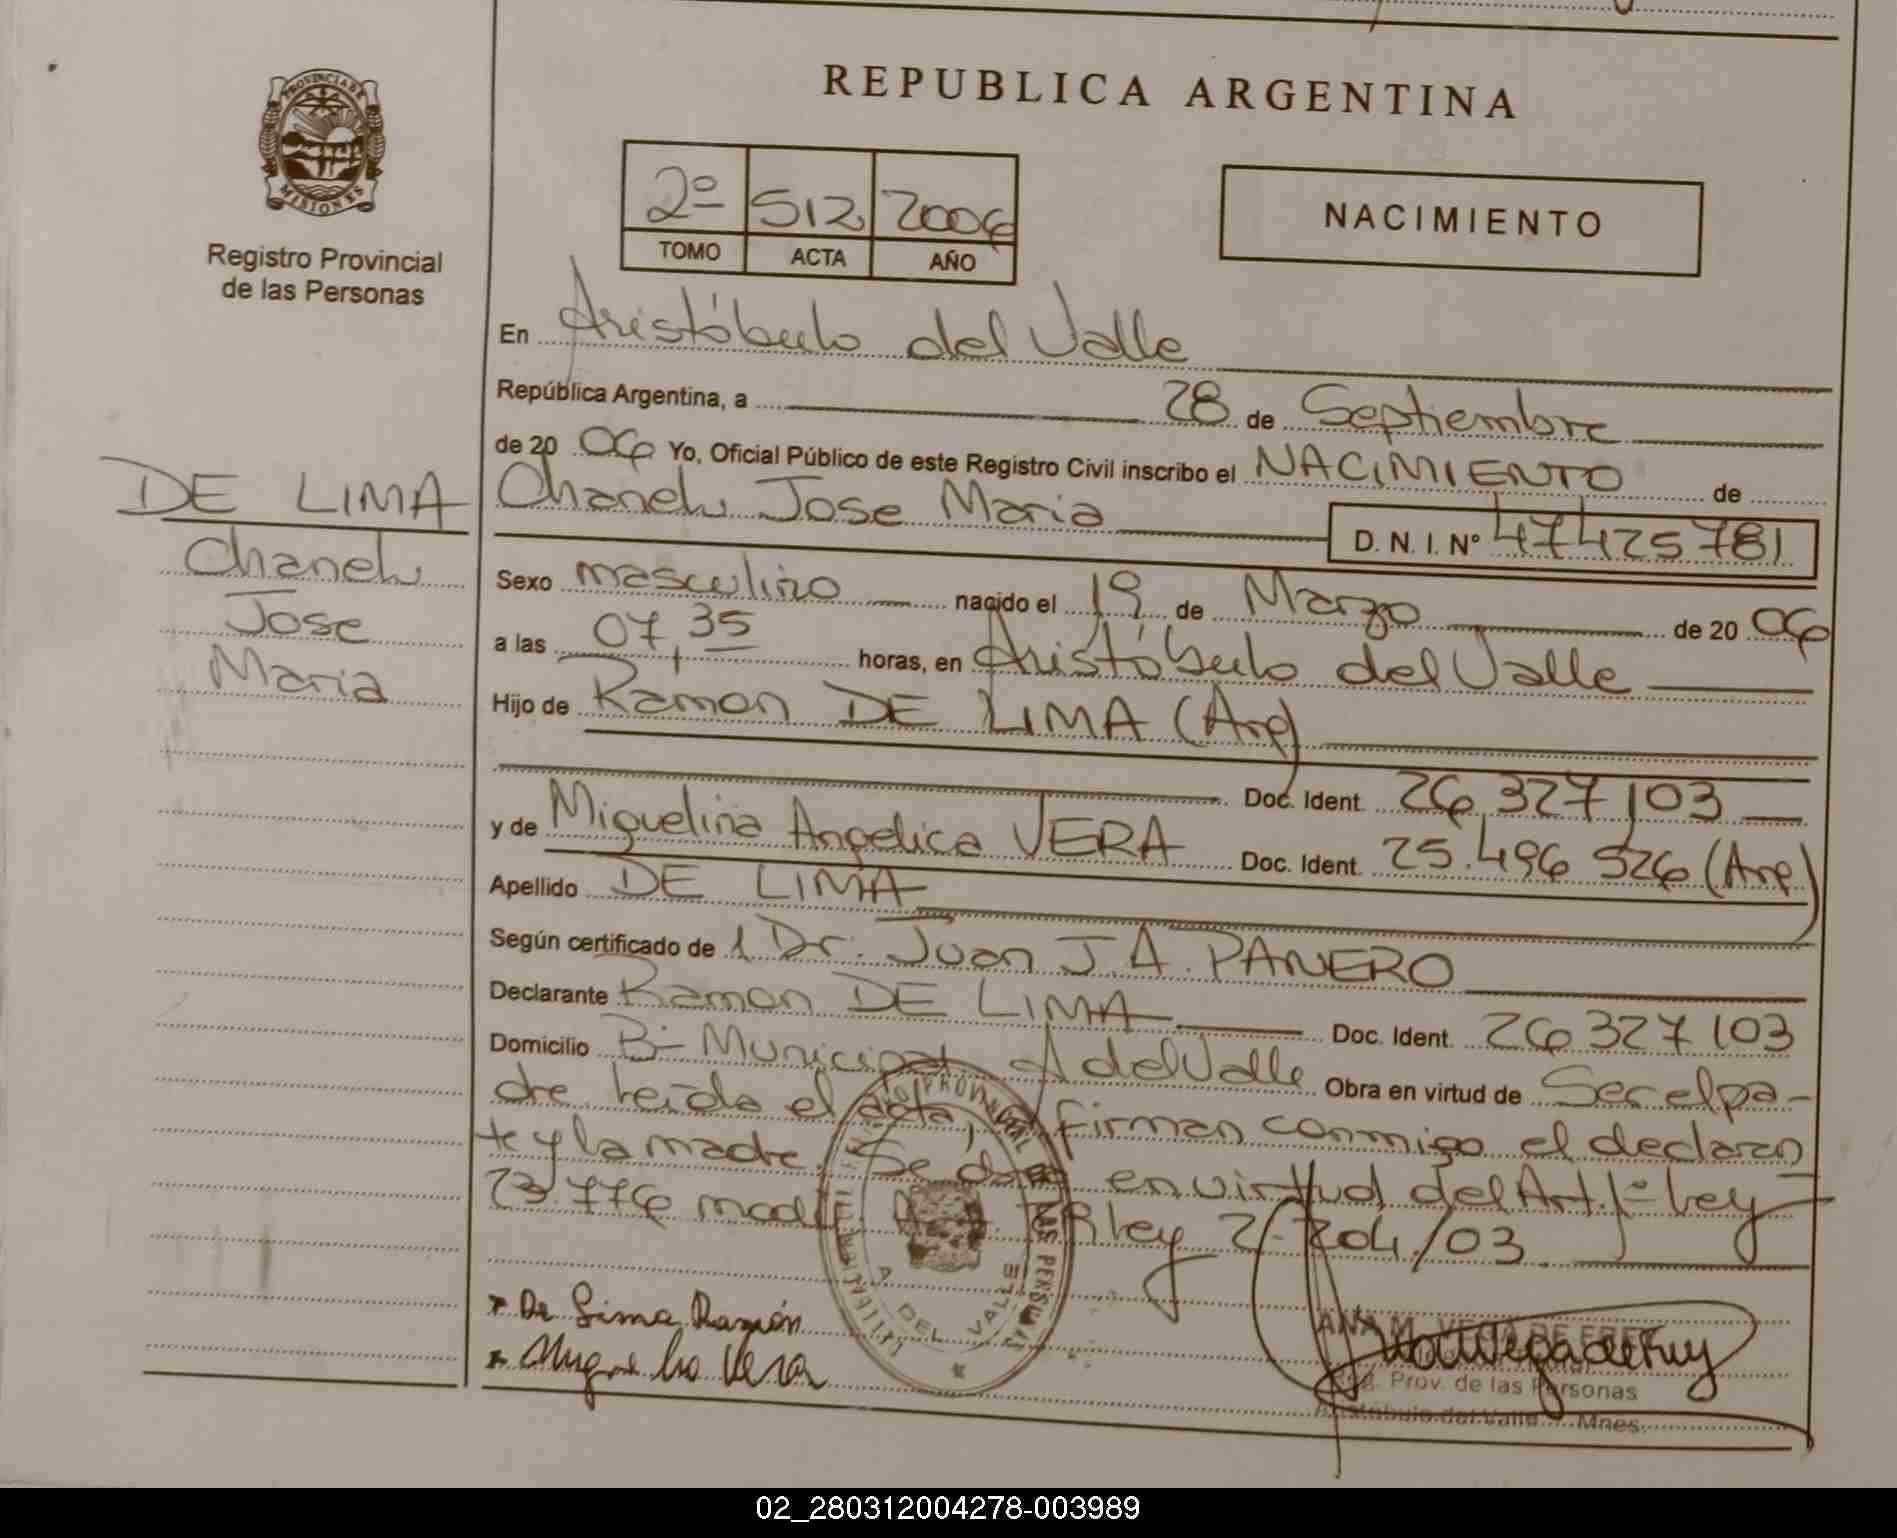 REPUBLICA ARGENTINA
PROVINCIA DE
MISIONES
Registro Provincial
de las Personas
2º 512 2006
TOMO ACTA AÑO
NACIMIENTO
En Aristóbulo del Valle
República Argentina, a 28 de Septiembre
de 20 06 Yo, Oficial Público de este Registro Civil inscribo el NACIMIENTO de
DE LIMA
Jose
Maria
Jose Maria D. N. I. Nº 47425781
Sexo masculino nacido el 19 de Marzo de 20 06
a las 07,35 horas, en Aristóbulo del Valle
Hijo de Ramon DE LIMA (Arg)
Doc. Ident. 26.327.103
y de Miguelina Angelica VERA Doc. Ident. 25.496 526 (Arg)
Apellido DE LIMA
Según certificado de Dr. Juan J.A. PANERO
Declarante Ramon DE LIMA Doc. Ident. 26 327 103
Domicilio Bº Municipal A del Valle Obra en virtud de Ser el pa-
dre. leida el acta, firman conmigo el declaran
te y la madre. Se en virtud del Art. 1º Ley
23.776 ley 2.204/03
A DEL VALLE
De Lima Ramón
Vera
ANA M. VEGA DE
Reg. Prov. de las Personas
Aristóbulo del Valle - Mnes.
02_280312004278-003989